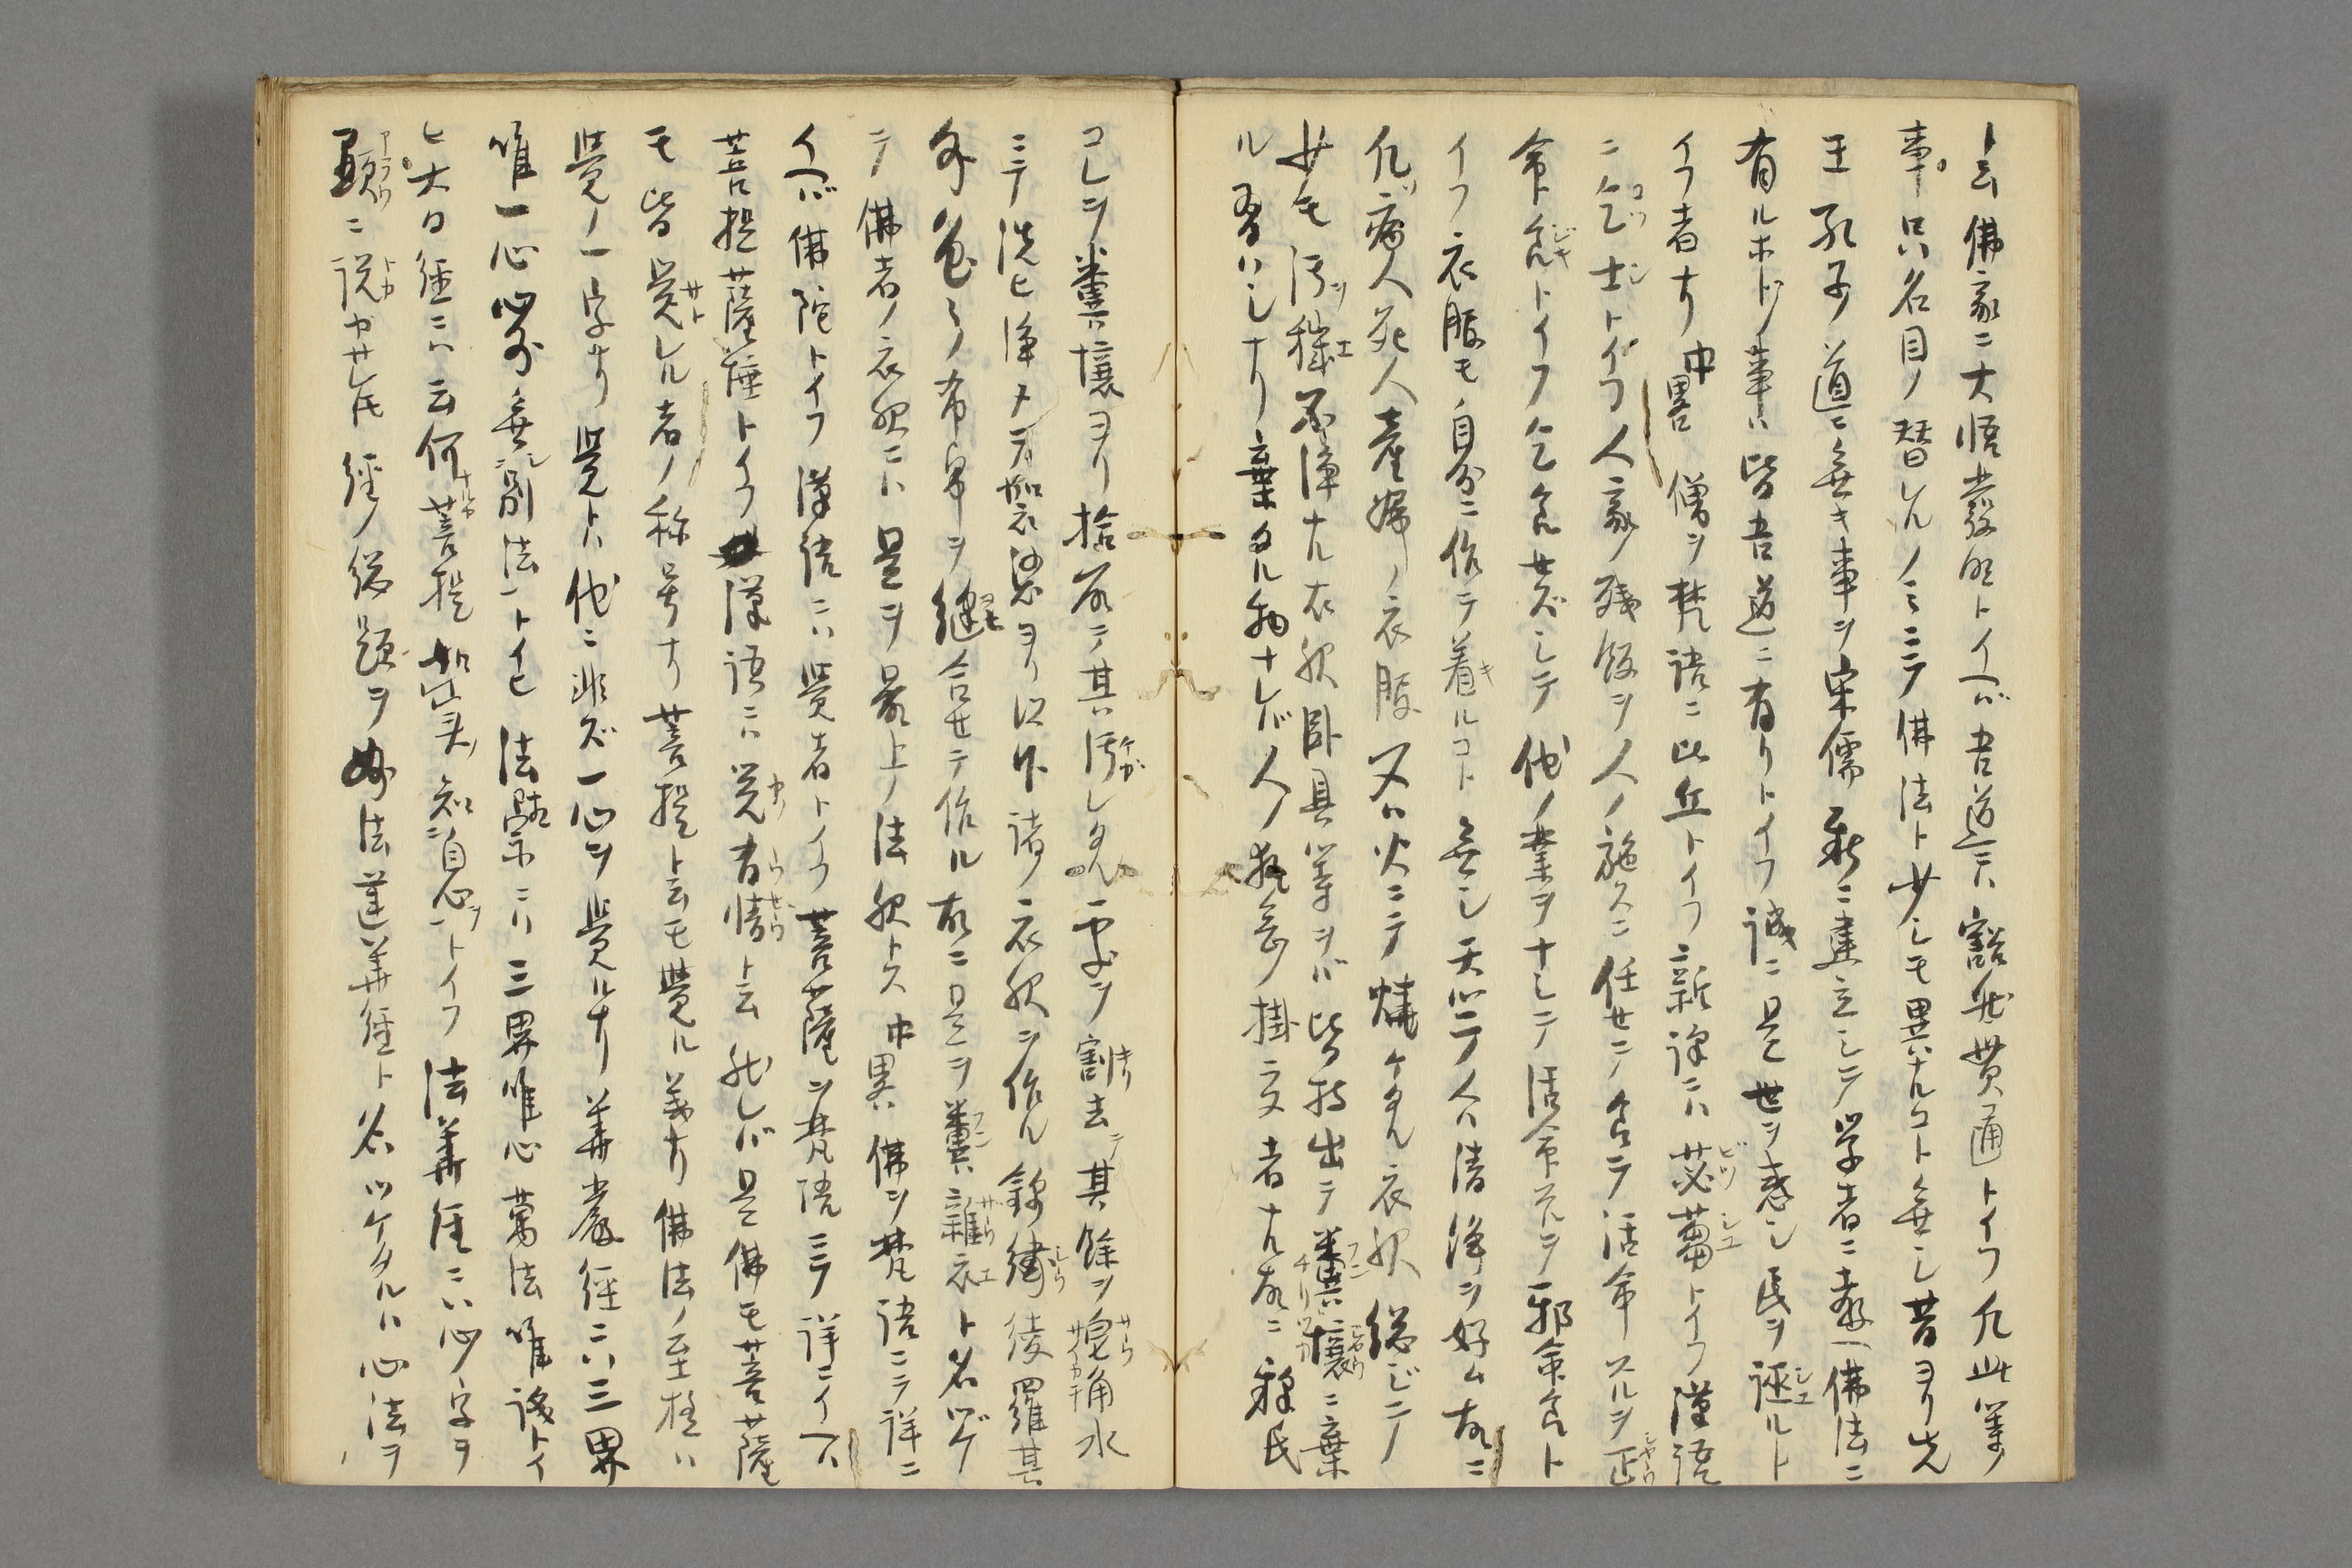 ト云佛家ニ大悟発明トイヘバ吾道ニハ豁然貫通トイフ凡此等ノ
事只名目ノ替レルノミニテ佛法ト少シモ異ナルコト無シ昔ヨリ先
王孔子ノ道ニ無キ事ヲ宋儒新ニ建立シテ学者ニ教ヘ佛法ニ
有ルホドノ事ハ皆吾道ニ有リトイフ誠ニ是世ヲ惑シ民ヲ誣ルト
イフ者ナリ中畧 僧ヲ梵語ニ比丘トイフ新譯ニハ苾蒭トイフ漢語
ニ乞士トイフ人家ノ残飯ヲ人ノ施スニ任セテ食テ活命スルヲ正
命食トイフ乞食セズシテ他ノ業ヲナシテ活命スルヲ邪命食ト
イフ衣服モ自分ニ作テ着ルコト無シ天竺ノ人ハ清浄ヲ好ム故ニ
凡ソ病人死人産婦ノ衣服又ハ火ニテ燒ケタル衣服総ジテ
少モ汚穢不浄ナル衣服臥具等ヲバ皆持出テ糞壤ニ棄
ル習ハシナリ棄タル物ナレバ人ノ執念ノ掛ラヌ者ナル故ニ釋氏
コレヲ糞壤ヨリ拾取テ其汚レタル處ヲ割去テ其餘ヲ皂角水
ニテ洗ヒ浄メテ袈裟ヨリ以下諸ノ衣服ヲ作ル錦繍綾羅其
外色々ノ布帛ヲ縫合セテ作ル故ニ是ヲ糞雜衣ト名ヅク
テ佛者ノ衣服ニハ是ヲ最上ノ法服トス中畧 佛ヲ梵語ニテ詳ニ
イヘバ佛陀トイフ漢語ニハ覺者トイフ菩薩ヲ梵語ニテ詳ニイヘバ
菩提薩埵トイフ漢語ニハ覚有情ト云然レバ是佛モ菩薩
モ皆覚レル者ノ称号ナリ菩提ト云モ覺ル義ナリ佛法ノ至極ハ
覺ノ一字ナリ覺トハ他ニ非ズ一心ヲ覺ルナリ華嚴経ニハ三界
唯一心心外無別法トイヒ法相宗ニハ三界唯心萬法唯識トイ
ヒ大日経ニハ云何菩提如実知自心トイフ法華経ニハ心ノ字ヲ
顕ニ説カサレ𪜈経ノ総題ヲ妙法蓮華経ト名ツケタルハ心法ヲ